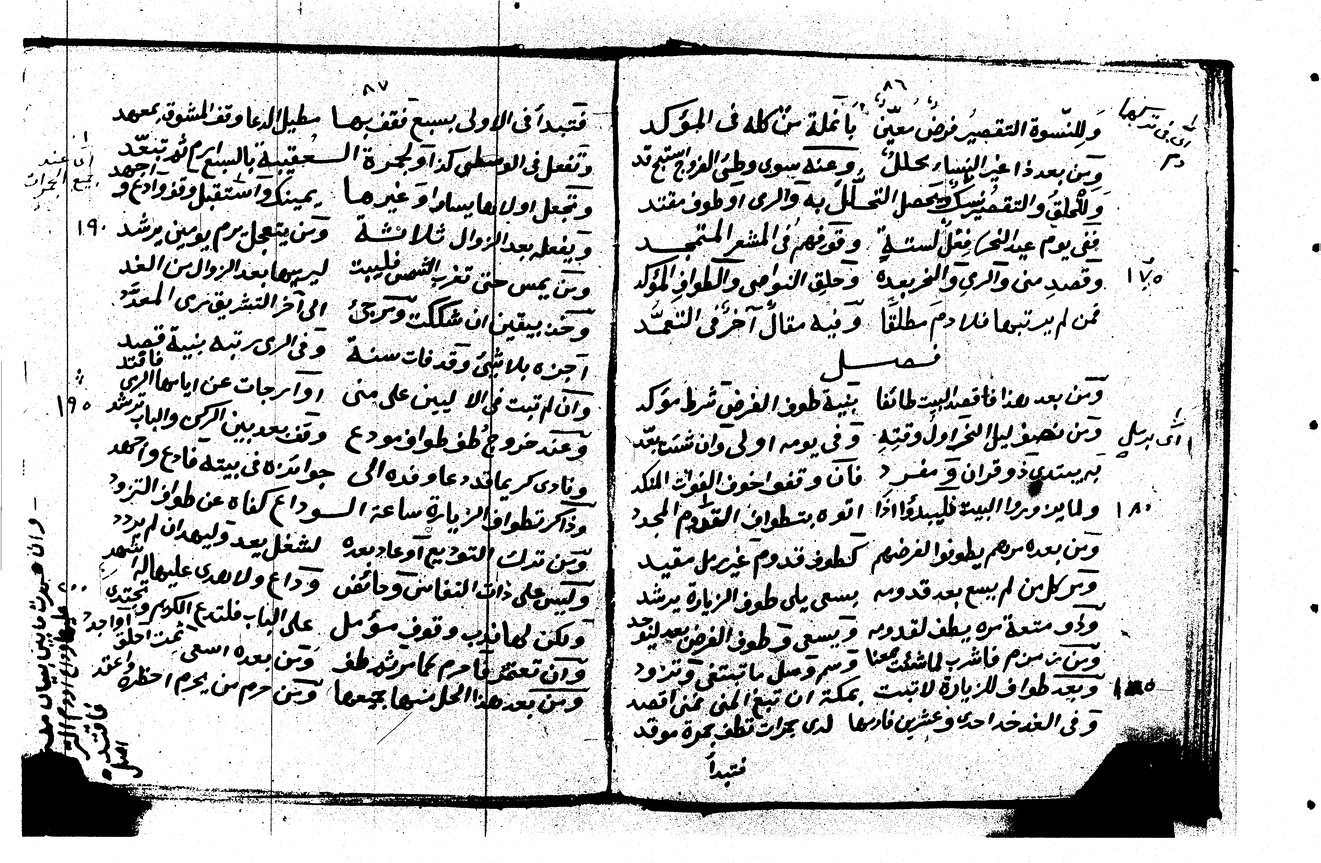 ٨٦
وللنسوة التقصير فرض معين بأنملة من كله في المؤكد
ومن بعد ذا غير النساء محلل وعنه سوى وطئ الفروج استبح قد
وللحلق والتقصير نسك ويحصل التحلل به والرمي او طوف مقتد
ففي يوم عيد النحر نقل لستة وقوفهم في المشعر المتمجد
وقصد منى والرمي والنحر بعده وحلق النواصي والطواف المؤكد
١٧٥
فمن لم يرتبها فلا دم مطلقا وفيه مقال آخر في التعمد
فصل
ومن بعد هذا فاقصد البيت طائفا بنية طوف الفرض شرط مؤكد
ومن نصف ليل النحر اول وقته وفي يومه اولى وان شئت بعد
به يبتدي ذو قران ومفرد فان وقفوا خوف الفوات المنكد
ولما يزوروا البيت فليبدؤا اذا اتوه بتطواف القدوم المجدد
١٨٠
ومن بعده مرهم يطوفوا لفرضهم كطوف قدوم غير رمل مقيد
ومر كل من لم يسع بعد قدومه بسعي يلي طوف الزيارة يرشد
وذو متعة مره يطف لقدومه ويسعى وطوف الفرض بعد ليوجد
ومن زمزم فاشرب لما شئت معنا وسم وسل ما تبتغي وتزود
وبعد طواف للزيارة لا تبت بمكة ان تبغ المنى فمنى اقصد
١٨٥
وفي الغد خذ احدى وعشرين فارمها لدى جمرات تطف بجمرة موقد
فتبدأ
٨٧
فتبدأ في الاولى بسبع فقف بها مطيل الدعا وقف المشوق بمعهد
وتفعل في الوسطى كذا ولجمرة العقيبة بالسبع ارم ثم تبعد
وتجعل اولاها يسارا وغيرها يمينك واستقبل وقف وادع واجهد
ويفعله بعد الزوال ثلاثة ومن يتعجل يرم يومين يرشد
١٩٠
ومن يمس حتى تغرب الشمس فليبت ليرميها بعد الزوال من الغد
وخذ بيقين ان شككت ومرجئ الى آخر التشريق رمي المعدد
اجزه بلا شيئ وقد فات سنة وفي الرمي رتبه بنية قصد
وان لم تبت في الا ليين على منى او ارجات عن ايامها الرمي فافتد
وعند خروج طف طواف مودع وقف بعد بين الركن والباب ترشد
١٩٥
وناد كريما قد دعا وفده الى جوائزه في بيته فادع واجهد
وذاكر تطواف الزيارة ساعة الوداع كفاه عن طواف التزود
ومن ترك التوديع او عاد بعده لشغل يعد وليهد ان لم يردد
وليس على ذات النفاس وحائض وداع ولا هدي عليها له اشهد
ولكن لها ندب وقوف مؤمل على الباب فلتدع الكريم وتجتدي
وان تعتمر فاحرم كما مر ثم طف ومن بعده اسعى ثمت احلق
ومن بعد هذا الحل منها جميعها ومن حرم من يحرم احظره واعند
اي عند
جميع الجمرات